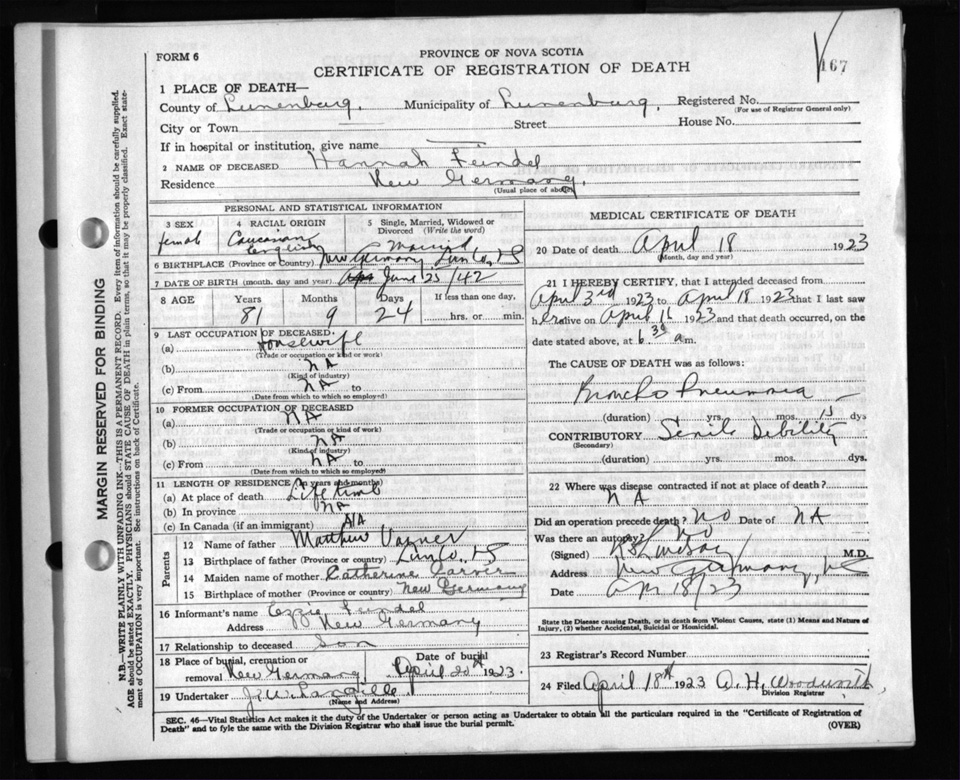 167
FORM 6
PROVINCE OF NOVA SCOTIA
CERTIFICATE OF REGISTRATION OF DEATH
1 PLACE OF DEATH—
County of Lunenburg, Municipality of Lunenburg, Registered No.
(For use of Registrar General only)
City or Town Street House No.
If in hospital or institution, give name
2 NAME OF DECEASED Hannah Feindel
Residence New Germany,
(Usual place of abode)
PERSONAL AND STATISTICAL INFORMATION
3 SEX 4 RACIAL ORIGIN 5 Single, Married, Widowed or Divorced (Write the word)
female Caucasian Married
6 BIRTHPLACE (Province or Country) New Germany Lun Co, NS
7 DATE OF BIRTH (month, day and year) June 25/42
8 AGE Years Months Days If less than one day,
81 9 24 hrs. or min.
9 LAST OCCUPATION OF DECEASED
(a) Housewife
(Trade or occupation or kind or work)
(b) NA
(Kind of industry)
(c) From NA to
(Date from which to which so employed)
10 FORMER OCCUPATION OF DECEASED
(a) NA
(Trade or occupation or kind of work)
(b) NA
(Kind of industry)
(c) From NA to
(Date from which to which so employed)
11 LENGTH OF RESIDENCE (in years and months)
(a) At place of death Life time
(b) In province NA
(c) In Canada (if an immigrant) NA
Parents
12 Name of father Matthew Varner
13 Birthplace of father (Province or country) Lun Co, NS
14 Maiden name of mother Catherine Carver
15 Birthplace of mother (Province or country) New Germany
16 Informant's name Feindel
Address New Germany
17 Relationship to deceased Son
18 Place of burial, cremation or removal New Germany Date of burial April 20th 1923
19 Undertaker J. W. Langille
(Name and Address)
MEDICAL CERTIFICATE OF DEATH
20 Date of death April 18 1923
(Month, day and year)
21 I HEREBY CERTIFY, that I attended deceased from
April 3rd 1923 to April 18 1923 that I last saw
her alive on April 16 1923 and that death occurred, on the
date stated above, at 6 30 a m.
The CAUSE OF DEATH was as follows:
Broncho Pneumonia
(duration) yrs. mos. 15 dys
CONTRIBUTORY Senile Debility
(Secondary)
(duration) yrs. mos. dys.
22 Where was disease contracted if not at place of death?
NA
Did an operation precede death? No Date of NA
Was there an autopsy? No
(Signed) M.D.
Address New Germany, NS
Date Apr 18/23
State the Disease causing Death, or in death from Violent Causes, state (1) Means and Nature of
Injury, (2) whether Accidental, Suicidal or Homicidal.
23 Registrar's Record Number
24 Filed April 18th 1923 A. H. Woodworth,
Division Registrar
SEC. 46—Vital Statistics Act makes it the duty of the Undertaker or person acting as Undertaker to obtain all the particulars required in the "Certificate of Registration of
Death" and to fyle the same with the Division Registrar who shall issue the burial permit.
(OVER)
MARGIN RESERVED FOR BINDING
N.B.—WRITE PLAINLY WITH UNFADING INK—THIS IS A PERMANENT RECORD. Every item of information should be carefully supplied.
AGE should be stated EXACTLY. PHYSICIANS should STATE CAUSE OF DEATH in plain terms, so that it may be properly classified. Exact state-
ment of OCCUPATION is very important. See instructions on back of Certificate.